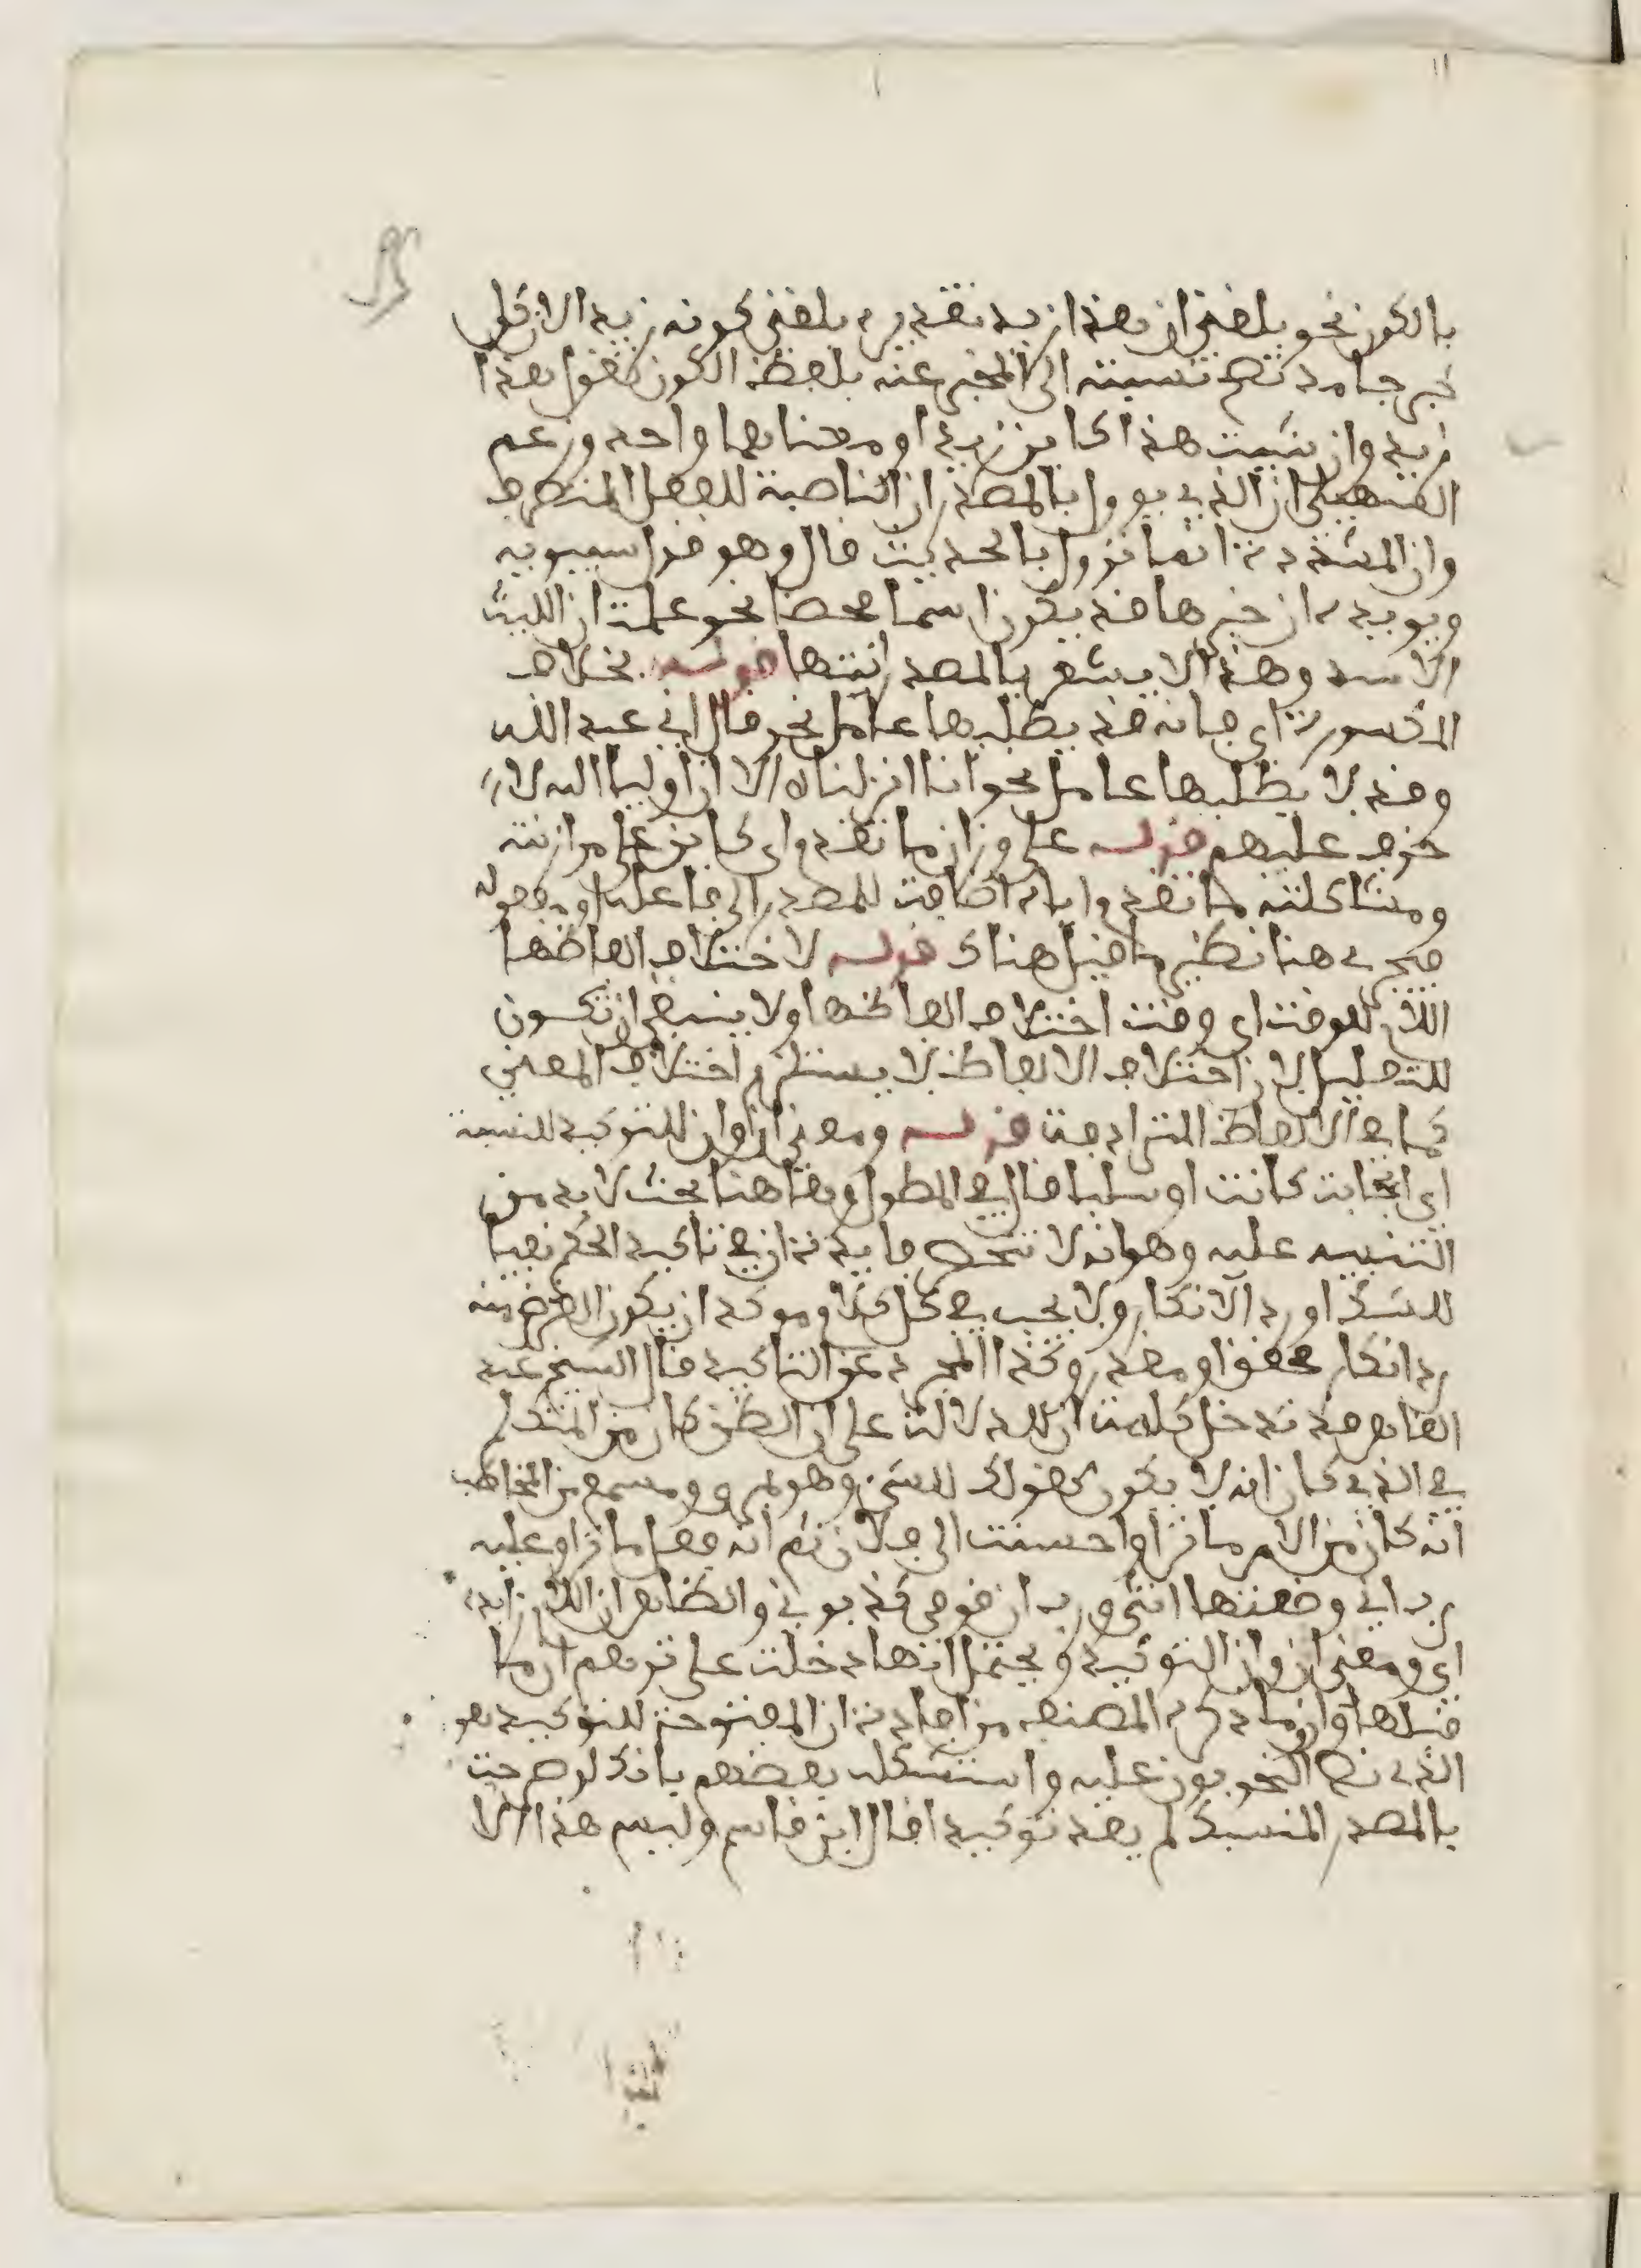 بالكون نحو بلغني ان هذا زيد تقديره بلغني كونه زيد الان كل
خبر جامد تصح نسبته الى المخبر عنه بلفظ الكون تقول هذا
زيد وان شيت هذا كاين زيدا ومعناهما واحد وزعم
السهيلي ان الذي يوول بالمصدر ان الناصبة للفعل المتصرف
وان المشددة انما توول بالحديث قال وهو قول سيبويه
ويويده ان خبرها قد يكون اسما محضا نحو علمت ان الليث
الاسد وهذا لا يشعر بالمصدر انتهى قوله بخلاف
المكسورة اي فانه قد يطلبها عامل نحو قال اني عبد الله
وقد لا يطلبها عامل نحو انا انزلناه الا ان اولياء الله لا
خوف عليهم قوله على وزان ما تقدم اي كاين على موازنته
ومشاكلته ما تقدم وايام اضافة للمصدر الى فاعله او مفعوله
فيجري هنا نظير ما قيل هناك قوله لاختلاف الفاظها
اللام للوقت اي وقت اختلاف الفاظها ولا ينبغي ان تكون
للتعليل لان اختلاف الالفاظ لا يستلزم اختلاف المعنى
كما في الالفاظ المترادفة قوله ومعنى ان وان للتوكيد للنسبة
اي ايجابت كانت او سلبا قال في المطول وها هنا بحث لا بد من
التنبيه عليه وهو انه لا تنحصر فايدة ان في تاكيد الحكم نفيا
للشك او رد الانكار ولا يجب في كل كلام موكد ان يكون الغرض منه
رد انكار محقق او مقدر وكذا المجرد عن التاكيد قال الشيخ عبد
القاهر قد تدخل كلمة ان للدلالة على ان الظن كان من المتكلم
في الذي كان انه لا يكون كقولك للشيء وهو بمرءى ومسمع من المخاطب
انه كان من الامر ما ترى واحسنت الى فلان ثم انه فعل ما ترى وعليه
رب اني وضعتها انثى ورب ان قومي كذبوني والظاهر ان اللام زايدة
اي ومعنى ان وان التوكيد ويحتمل انها دخلت على توهم ان ما
قبلها وان ما ذكره المصنف من افادة ان المفتوحة للتوكيد هو
الذي نص النحويون عليه واستشكله بعضهم بانك لو صرحت
بالمصدر المنسبك لم يفد توكيدا قال ابن قاسم وليس هذا الا